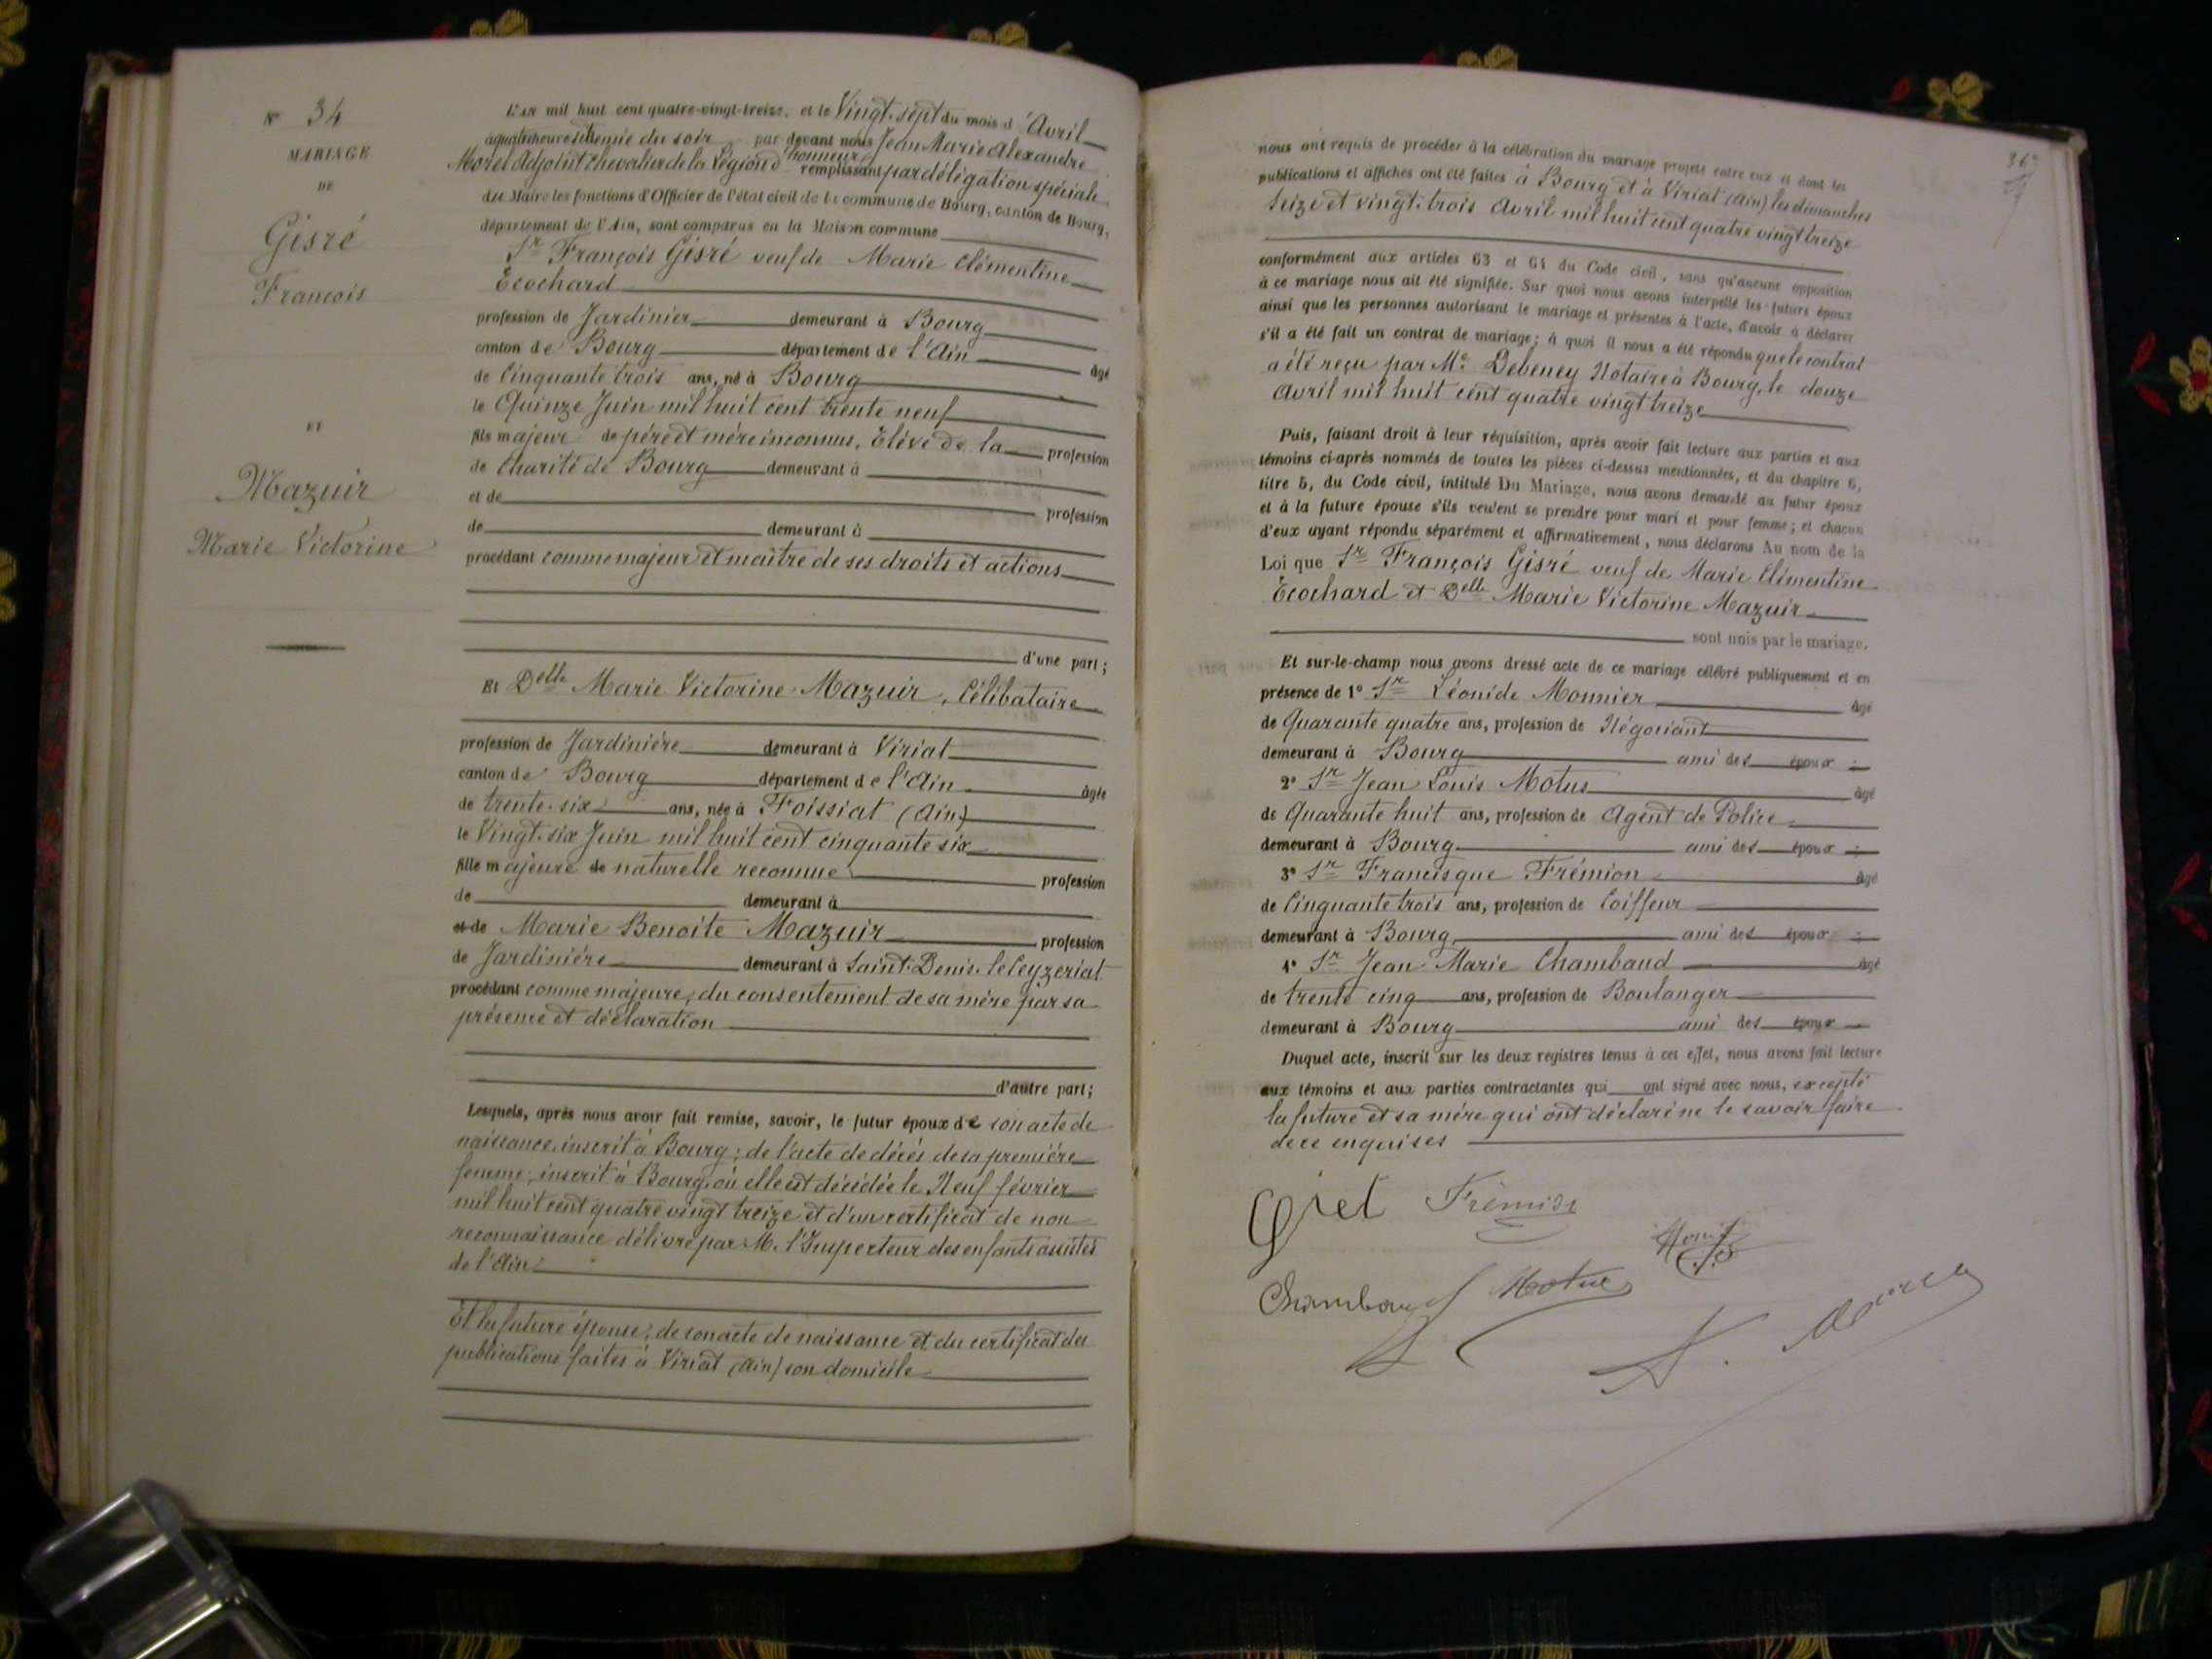 N° 34
MARIAGE
DE
Gisré
François
ET
Mazuir
Marie Victorine
L'AN mil huit cent quatre-vingt-treize, et le Vingt-sept du mois d'Avril
à quatre heures et demie du soir par devant nous Jean Marie Alexandre
Morel Adjoint Chevalier de la Légion d'honneur remplissant par délégation spéciale
du Maire les fonctions d'Officier de l'état civil de la commune de Bourg, canton de Bourg,
département de l'Ain, sont comparus en la Maison commune
Sr François Gisré veuf de Marie Clémentine
Ecochard
profession de Jardinier demeurant à Bourg
canton de Bourg département de l'Ain âgé
de Cinquante trois ans, né à Bourg
le Quinze Juin mil huit cent trente neuf
fils majeur de père et mère inconnus, Elève de la profession
de Charité de Bourg demeurant à
et de profession
de demeurant à
procédant comme majeur et maître de ses droits et actions
d'une part;
Et Delle Marie Victorine Mazuir, Célibataire
profession de Jardinière demeurant à Viriat
canton de Bourg département de l'Ain âgée
de trente-six ans, née à Foissiat (Ain)
le Vingt-six Juin mil huit cent cinquante six
fille majeure de naturelle reconnue profession
de demeurant à
et de Marie Benoite Mazuir profession
de Jardinière demeurant à Saint-Denis-le Ceyzeriat
procédant comme majeure, du consentement de sa mère par sa
présence et déclaration
d'autre part;
Lesquels, après nous avoir fait remise, savoir, le futur époux de son acte de
naissance, inscrit à Bourg; de l'acte de décès de sa première
femme, inscrit à Bourg, où elle est décédée le Neuf février
mil huit cent quatre vingt treize et d'un certificat de non
reconnaissance délivré par M. l'Inspecteur des enfants assistés
de l'Ain
Et la future épouse, de son acte de naissance et du certificat des
publications faites à Viriat (Ain) son domicile
36e
nous ont requis de procéder à la célébration du mariage projeté entre eux et dont les
publications et affiches ont été faites à Bourg et à Viriat (Ain) les dimanches
seize et vingt-trois Avril mil huit cent quatre vingt treize
conformément aux articles 63 et 64 du Code civil, sans qu'aucune opposition
à ce mariage nous ait été signifiée. Sur quoi nous avons interpellé les futurs époux
ainsi que les personnes autorisant le mariage et présentes à l'acte, d'avoir à déclarer
s'il a été fait un contrat de mariage; à quoi il nous a été répondu que le contrat
a été reçu par Me Debeney Notaire à Bourg, le douze
Avril mil huit cent quatre vingt treize
Puis, faisant droit à leur réquisition, après avoir fait lecture aux parties et aux
témoins ci-après nommés de toutes les pièces ci-dessus mentionnées, et du chapitre 6,
titre 5, du Code civil, intitulé Du Mariage, nous avons demandé au futur époux
et à la future épouse s'ils veulent se prendre pour mari et pour femme; et chacun
d'eux ayant répondu séparément et affirmativement, nous déclarons Au nom de la
Loi que Sr François Gisré veuf de Marie Clémentine
Ecochard et Delle Marie Victorine Mazuir
sont unis par le mariage.
Et sur-le-champ nous avons dressé acte de ce mariage célébré publiquement et en
présence de 1° Sr Léonide Monnier âgé
de Quarante quatre ans, profession de Négociant
demeurant à Bourg ami des époux
2° Sr Jean Louis Motus âgé
de Quarante huit ans, profession de Agent de Police
demeurant à Bourg ami des époux
3° Sr Francisque Frémion âgé
de Cinquante trois ans, profession de Coiffeur
demeurant à Bourg ami des époux
4° Sr Jean Marie Chambaud âgé
de trente cinq ans, profession de Boulanger
demeurant à Bourg ami des époux
Duquel acte, inscrit sur les deux registres tenus à cet effet, nous avons fait lecture
aux témoins et aux parties contractantes qui ont signé avec nous, excepté
la future et sa mère qui ont déclaré ne le savoir faire
de ce enquises
Frémion
Chambaud
Motus